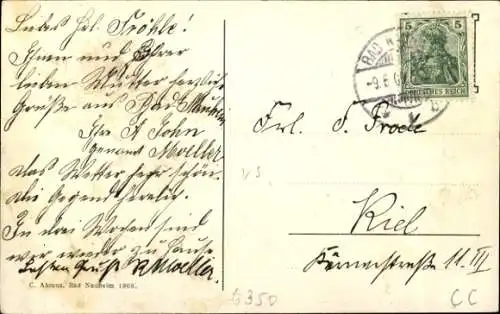 Liebes Frl. Fröhle!
Ihnen und Ihrer
lieben Mutter herzlich
Grüße aus Bad
Ihr A John
genannt Moeller
das Wetter sehr schön.
die Gegend herrlich.
In drei Wochen sind
wir wieder zu Hause
besten Gruß Moeller.
C. Ahrens, Bad Nauheim 1908.
5 5
DEUTSCHES REICH
BAD N
-9.6.0
Frl. F.
V S
Kiel
straße 11. III
6350
CC